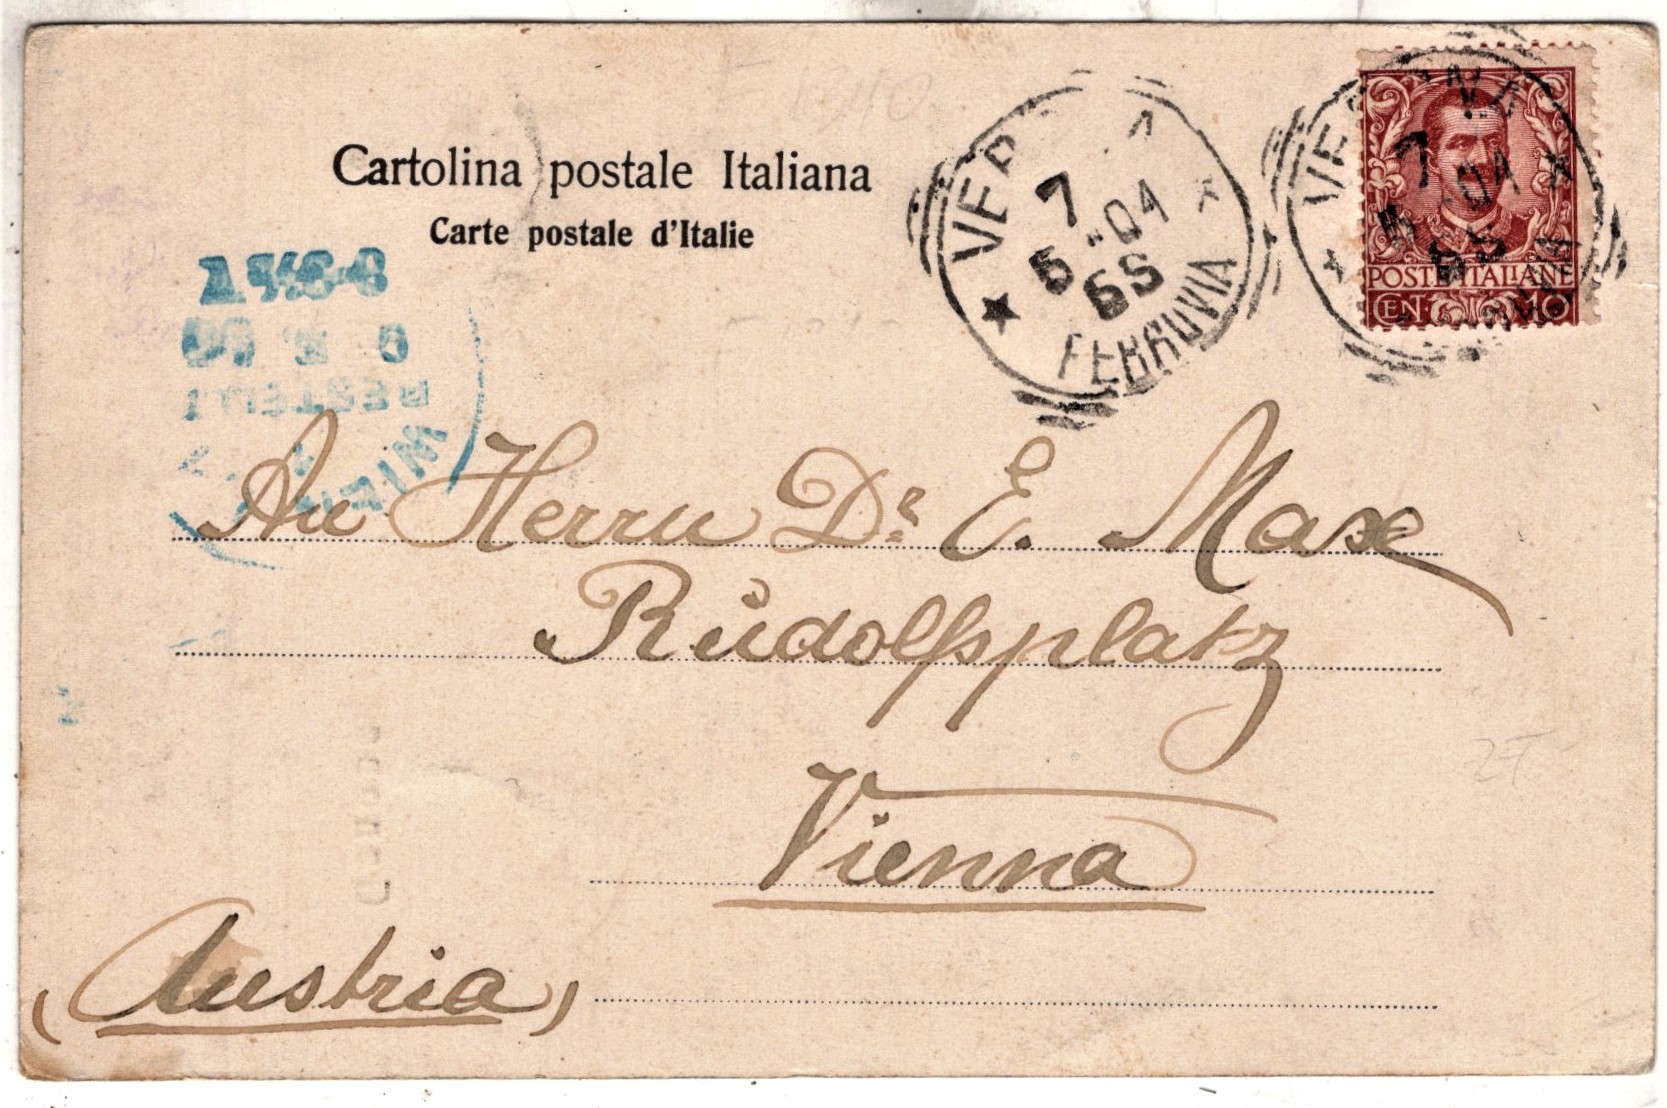 Cartolina postale Italiana
Carte postale d'Italie
7
5 .04
6S
FERROVIA
7
6S
POSTE ITALIANE
CEN. 10
WIEN
BESTELLT
An Herrn Dr. E. Maxe
Rudolfsplatz
Vienna
(Austria)